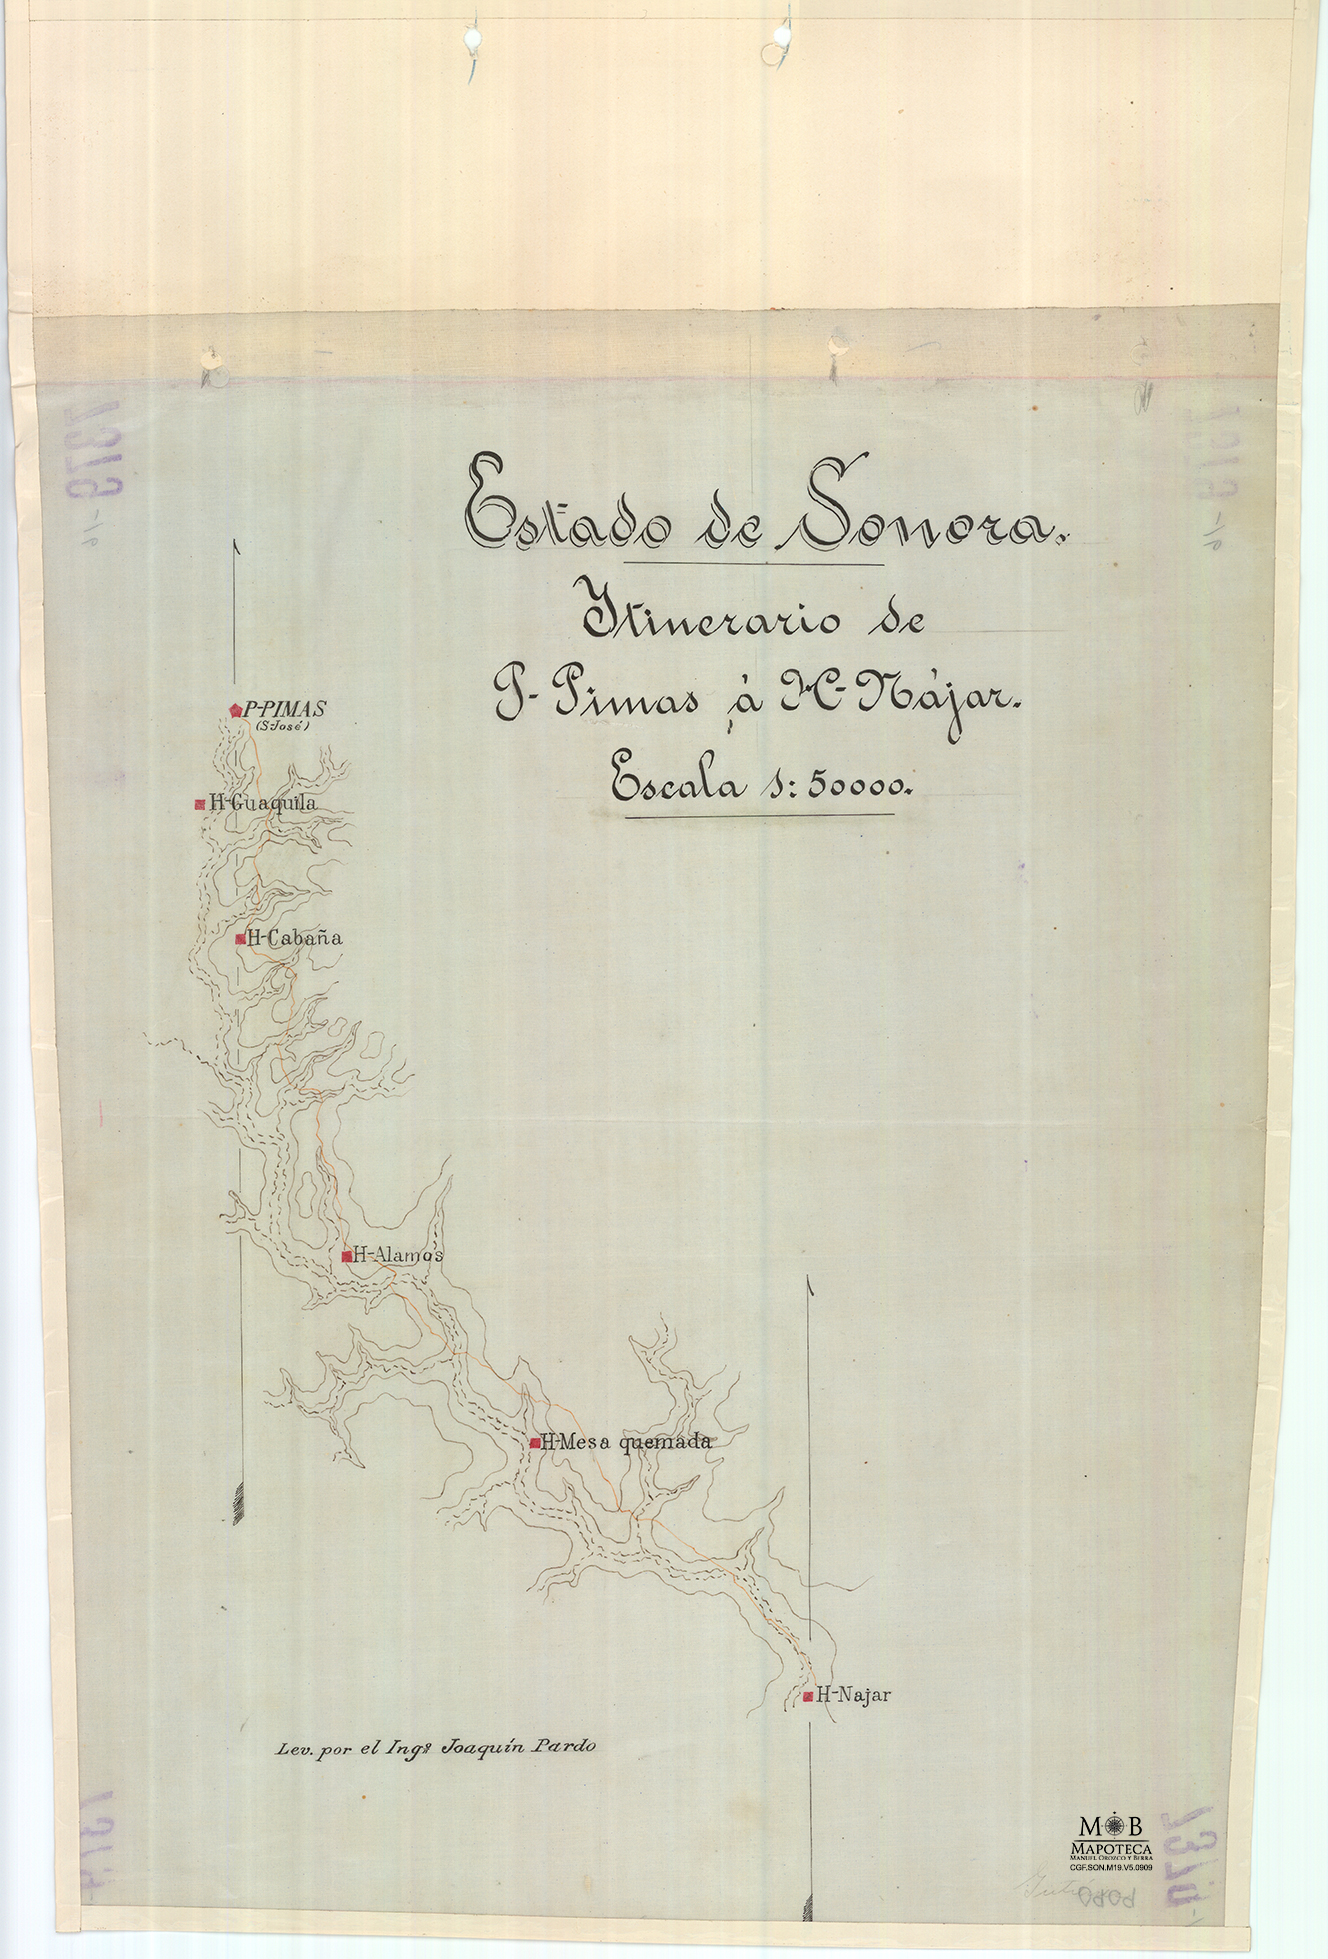 Estado de Sonora.
Itinerario de
P-Pimas á H-Nájar.
Escala 1:50000.
P-PIMAS
(S-José)
H-Guaquila
H-Cabaña
H-Alamos
H-Mesa quemada
H-Najar
Lev. por el Ingº Joaquín Pardo
M B
MAPOTECA
MANUEL OROZCO Y BERRA
CGF.SON.M19.V5.0909